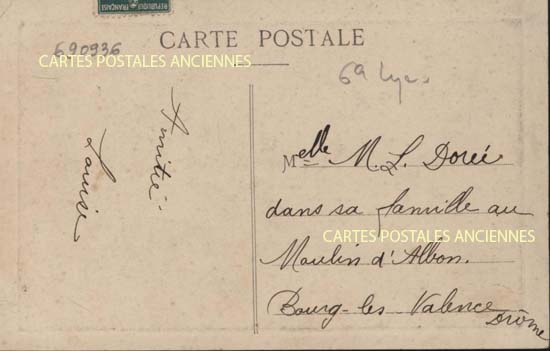 RÉPUBLIQUE FRANÇAISE
690936
CARTE POSTALE
CARTES POSTALES ANCIENNES
69
Amitié
Louise
Melle M. L. Dorée
dans sa famille au
CARTES POSTALES ANCIENNES
Moulin d'Albon.
Bourg-les-Valence
Drôme